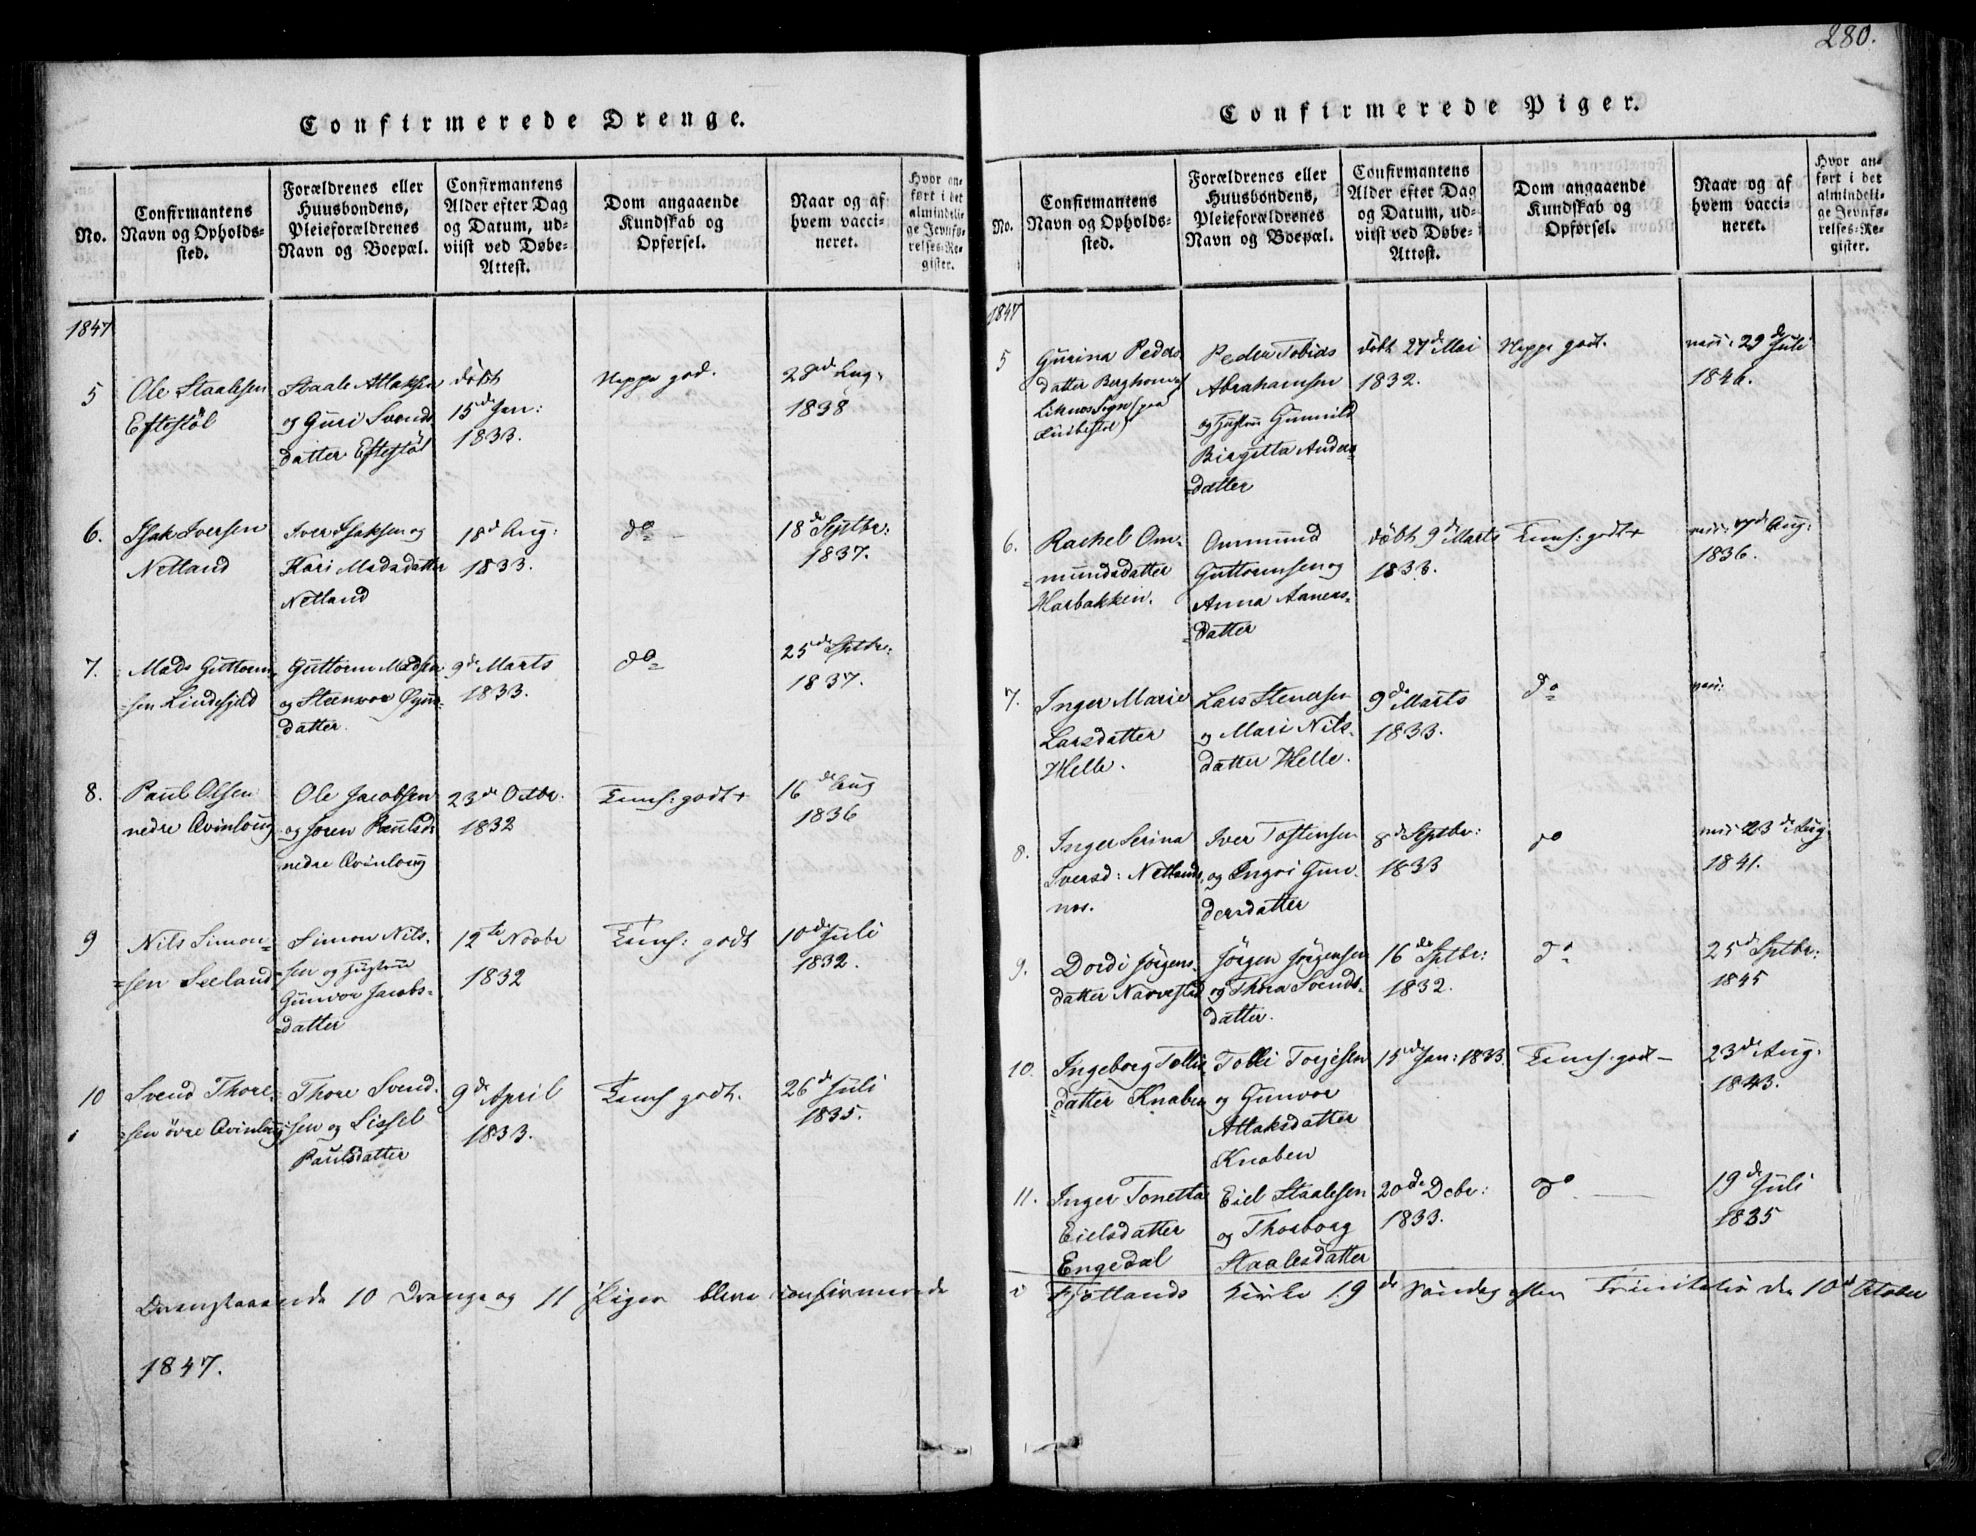 280.
Confirmerede Drenge.
No.
Confirmantens
Navn og Opholds-
sted.
Forældrenes eller
Huusbondens,
Pleieforældrenes
Navn og Boepæl.
Confirmantens
Alder efter Dag
og Datum, ud-
viist ved Døbe-
Attest.
Dom angaaende
Kundskab og
Opførsel.
Naar og af
hvem vacci-
neret.
Hvor an-
ført i det
almindeli-
ge Jevnfø-
relses-Re-
gister.
1847
5
Ole Staalesen
Eftestøl
Staale Atlaksen
og Guri Svends
datter Eftestøl
døbt
15de Jan:
1833.
Neppe god.
28de Aug.
1838
6.
Isak Iversen
Netland
Iver Isaksen og
Kari Madsdatter
Netland
18de Aug:
1833.
do
18de Septbr:
1837.
7.
Mads Guttorm-
sen Lindefjeld
Guttorm Madsen
og Steenvor
datter.
9de Marts
1833.
do
25de Septbr:
1837.
8.
Paul Olsen
nedre Qvinlaug
Ole Jacobsen
og Joren Paulsd:
nedre Qvinlaug
23de Octbr:
1832
Temf: godt +
16de Aug
1836
9
Nils Simon-
sen Seeland
Simon Nils-
sen og Hustrue
Gunvor Jacobs-
datter
12te Novbr
1832
Temf: godt
10de Juli
1832.
10
Svend Thore-
sen øvre Qvinlaug
Thore Svend-
sen og Sissel
Paulsdatter
9de April
1833.
Temf godt.
26de Juli
1835.
Ovenstaaende 10 Drenge og 11 Piger bleve confirmerede
1847.
Confirmerede Piger.
No.
Confirmantens
Navn og Opholds-
sted.
Forældrenes eller
Huusbondens,
Pleieforældrenes
Navn og Boepæl.
Confirmantens
Alder efter Dag
og Datum, ud-
viist ved Døbe-
Attest.
Dom angaaende
Kundskab og
Opførsel.
Naar og af
hvem vacci-
neret.
Hvor an-
ført i det
almindeli-
ge Jevnfø-
relses-Re-
gister.
1847
5
Gurina Peders
datter
Sogn (paa
Peder Tobias
Abrahamsen
og Hustrue Gunnild
Birgitta Anders-
datter
døbt 27de Mai
1832.
Neppe godt.
29de Juli
1846.
6.
Rachel Om-
mundsdatter
Harbakken.
Ommund
Guttormsen og
Anna Aaners-
datter
døbt 9de Marts
1833.
Temf: godt +
7de Aug:
1836.
7.
Inger Marie
Larsdatter
Helle.
Lars Stenersen
og Mari Nils-
datter Helle.
9de Marts
1833.
do
8.
Inger Serina
Iversd: Netlands-
nes.
Iver Tostensen
og Ingri Gun-
dersdatter
8de Septbr:
1833
do
23de Aug
1841.
9.
Dordi Jørgens-
datter Narvestad
Jørgen Jørgensen
og Thora Svends-
datter.
16de Sptbr:
1832.
do
25de Sptbr:
1845
10.
Ingeborg Tollis-
datter Knaben
Tolli Torjesen
og Gunvor
Atlaksdatter
Knaben
15de Jan: 1833
Temf: godt -
23de Aug:
1843.
11.
Inger Tonetta
Eielsdatter
Engedal
Eiel Staalesen
og Thorborg
Staalesdatter
20de Decbr:
1833.
do
19de Juli
1835
i Fjotlands Kirke 19de Søndag efter Trinitatis den 10de October